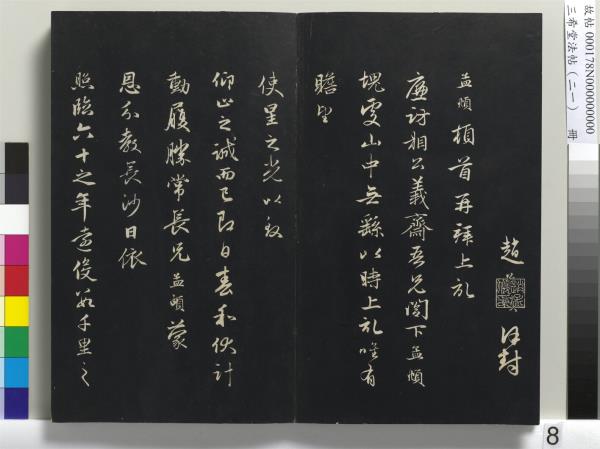 故帖 000178N000000000
三希堂法帖（二一） 冊
趙 謹封
孟頫頓首再拜上記
廉訪相公義齋吾兄閣下孟頫
塊處山中無繇以時上記唯有
瞻望
使星之光以致
仰止之誠而已即日春和伏計
動履勝常長兄孟頫蒙
恩不教長沙日依
照臨六十之年遠役數千里之
8